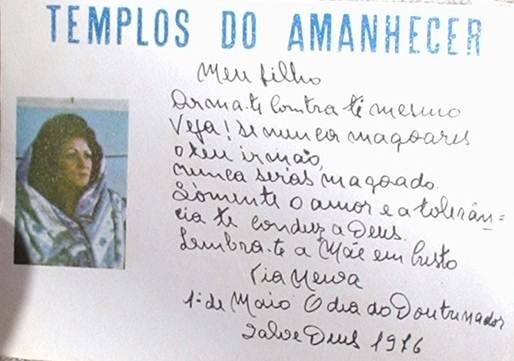 TEMPLOS DO AMANHECER
Meu filho
Arma-te contra ti mesmo
Veja! Se nunca magoares
o teu irmão,
nunca serás magoado.
Sòmente o amor e a tolerân=
cia te conduz a Deus.
Lembra-te a Mãe em Cristo
Tia Neiva
1º de Maio O dia do Doutrinador
Salve Deus 1976